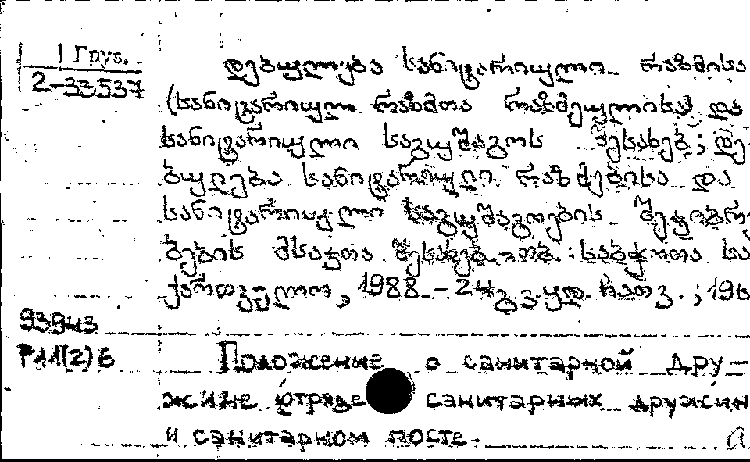 Груз.
2-33537
დებულება სანიტარიული რაზმისა
(სანიტარიულ რაზმთა რაზმეულისა) და
სანიტარიული საგუშაგოს შესახებ; დე-
ბულება სანიტარიული რაზმებისა და
სანიტარიული საგუშაგოების შეჯიბრე-
ბების მსაჯთა შესახებ.-თბ.: საბჭოთა სა
ქართველო, 1988.-24გვ.
93943
P11(2)6
Положение о санитарной дру-
жине отряде санитарных дружин
и санитарном посте.